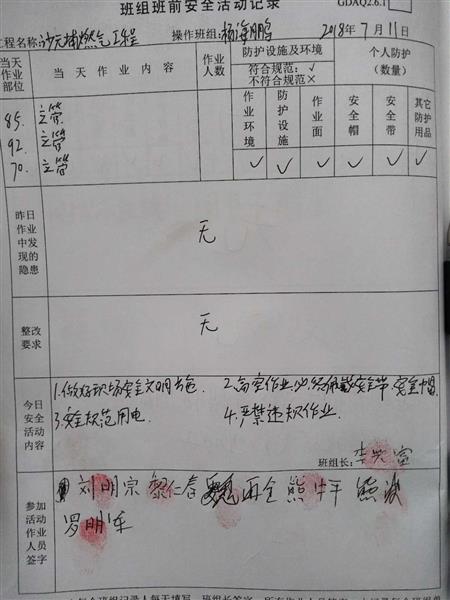 班组班前安全活动记录
GDAQ2.6.1
工程名称:沙元埔燃气工程 操作班组: 2018年7月11日
当天作业部位 当天作业内容 作业人数 防护设施及环境 符合规范:√ 不符合规范× 个人防护(数量)
作业环境 防护设施 作业面 安全帽 安全带 其它防护用品
85. 立管
92. 立管
70. 立管
√ √ √ √ √ √
昨日作业中发现的隐患 无
整改要求 无
今日安全活动内容
1.做好现场安全文明施 2.高空作业必须佩戴安全带、安全帽
3.安全规范用电 4.严禁违规作业.
班组长:李兴宣
参加活动作业人员签字
刘明宗 黎仁春 魏再全 熊 熊
罗明